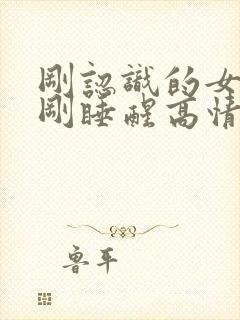 剛認識的女
剛睡醒高情
魯平